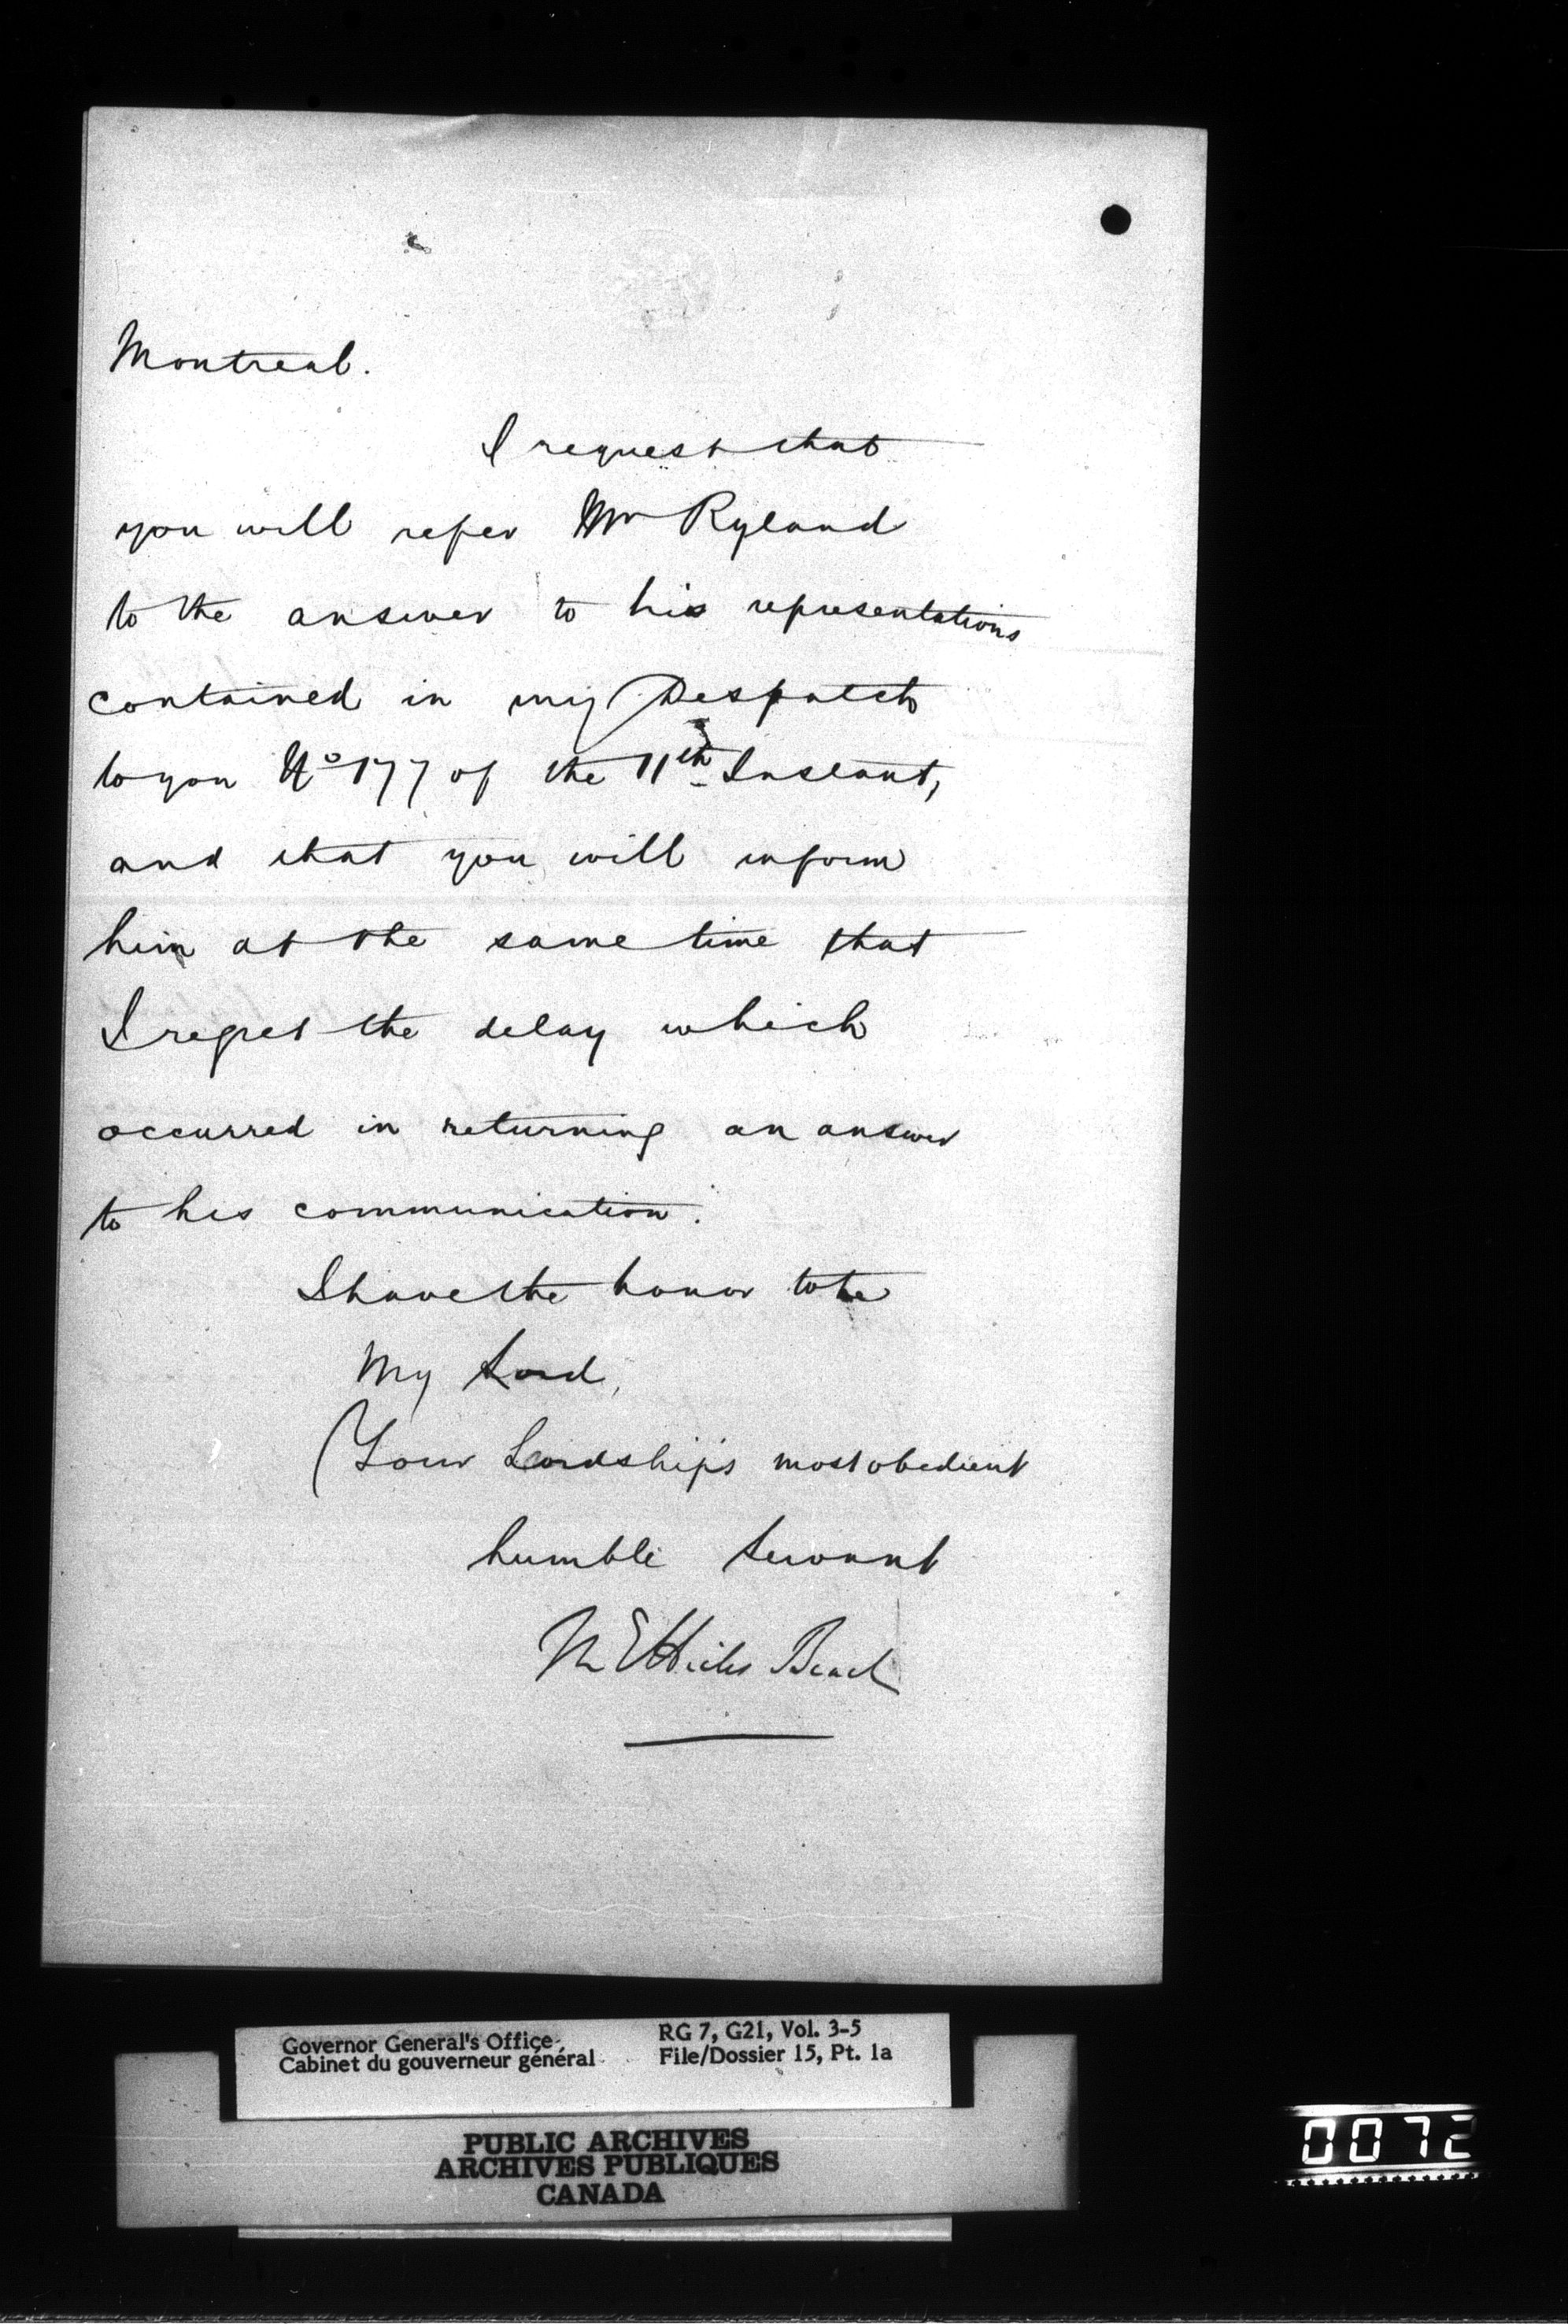 Montreal.
I request that
you will refer Mr Ryland
to the answer to his representations
contained in my Despatch
to you No 177 of the 11th Instant,
and that you will inform
him at the same time that
I regret the delay which
occurred in returning an answer
to his communication.
I have the honor to be
My Lord,
Your Lordship's most obedient
humble Servant
M E Hicks Beach
Governor General's Office
Cabinet du gouverneur général
RG 7, G21, Vol. 3-5
File/Dossier 15, Pt. 1a
PUBLIC ARCHIVES
ARCHIVES PUBLIQUES
CANADA
0072